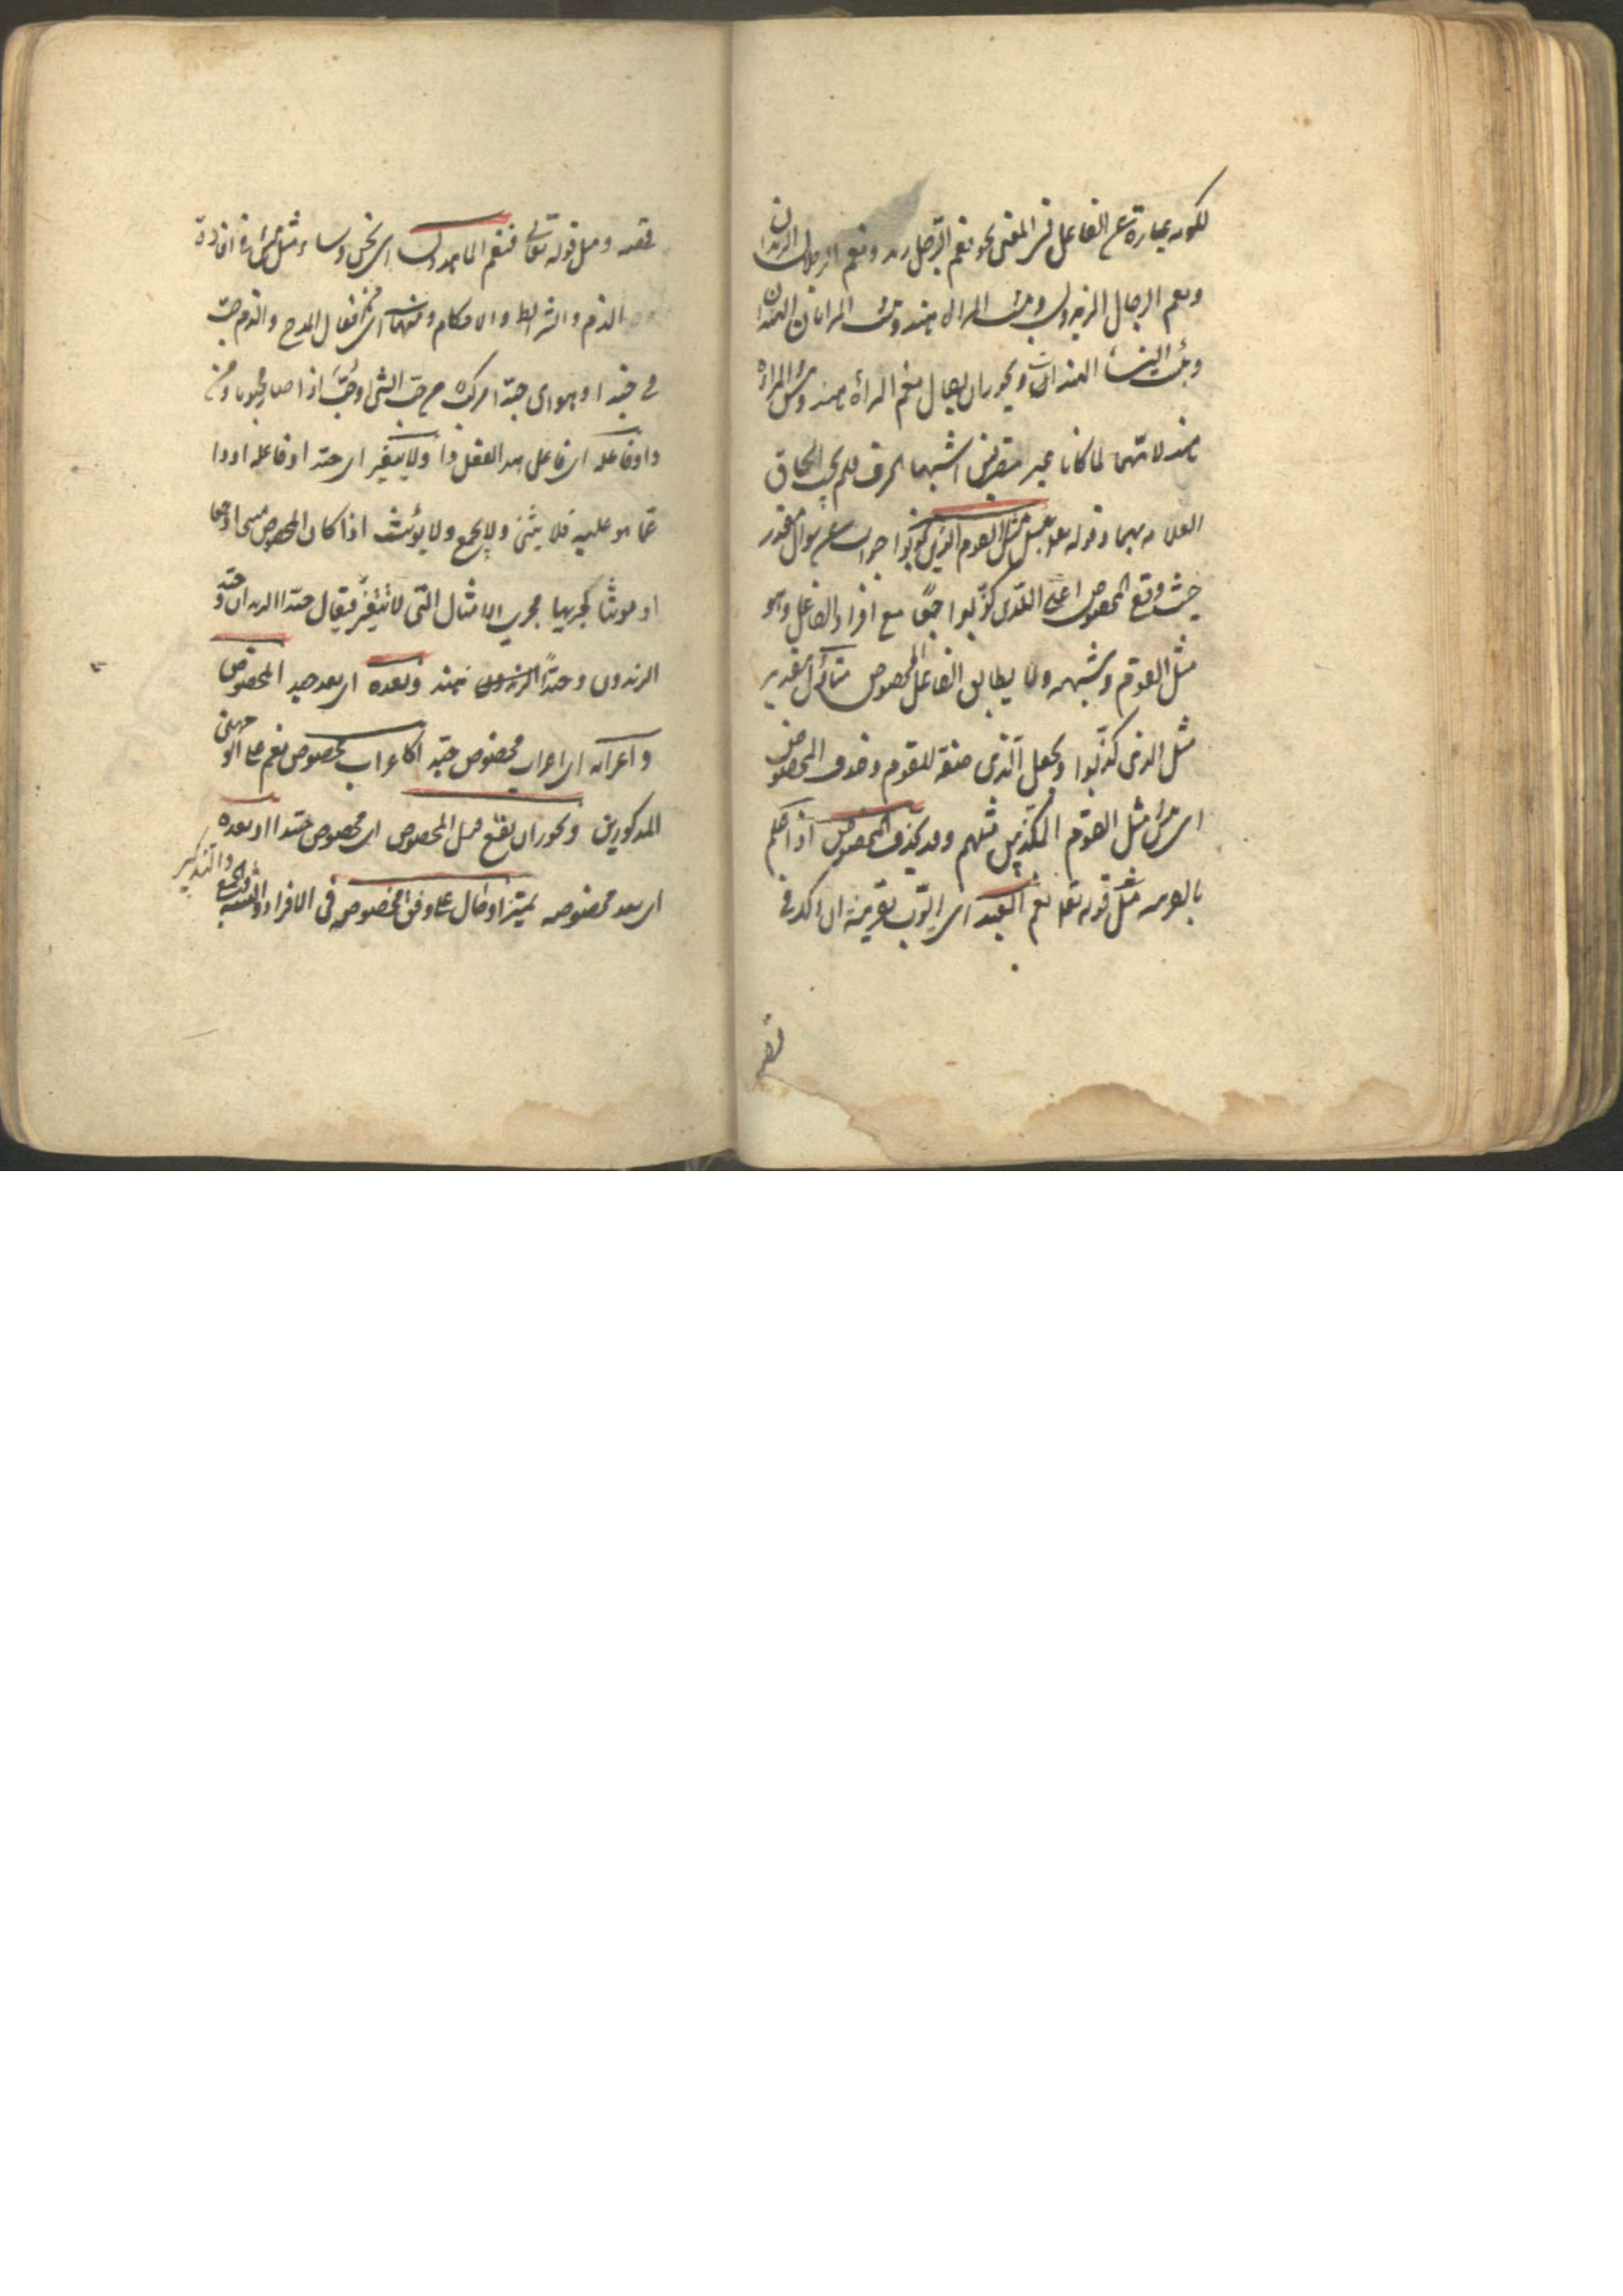 لكونه عبارة عن الفاعل في المعنى نحو نعم الرجل زيد ونعم الرجلان الزيدان
ونعم الرجال الزيدون وبئست المرأة هند وبئست المرأتان الهندان
وبئست النساء الهندات ويجوز ان يقال نعم المرأة هند وبئس المرأة
هند لانهما لما كانا غير متصرفين اشبها الحرف فلم يجب الحاق
العلامة بهما وقوله تعالى بئس مثل القوم الذين كذبوا جواب عن سوال مقدر
حيث وقع المخصوص اعني الذين كذبوا جمعا مع افراد الفاعل وهو
مثل القوم وشبهه مما لا يطابق الفاعل المخصوص متأول بتقدير
مثل الذين كذبوا وبجعل الذين صفة للقوم وحذف المخصوص
اى بئس مثل القوم المكذبين مثلهم وقد يحذف المخصوص اذا علم
بالقرينة مثل قوله تعالى نعم العبد اى ايوب بقرينة ان ذكر في
قصته
قصته ومثل قوله تعالى فنعم الماهدون اى نحن وساء مثل بئس في افادة
الذم والشرائط والاحكام ومنها اى من افعال المدح والذم حب
في حبذا وهو اى حبذا مركب من حب الشئ او حب اذا صار محبوبا ومن
ذا وفاعله اى فاعل هذا الفعل ذا ولا يتغير اى حبذا او فاعله او ذا
عما هو عليه فلا يثنى ولا يجمع ولا يؤنث اذا كان المخصوص مثنى او مجموعا
او مونثا لجريها مجرى الامثال التي لا تتغير فيقال حبذا الزيدان وحبذا
الزيدون وحبذا هند وبعده اى بعد حبذا المخصوص
واعرابه اى اعراب مخصوص حبذا كاعراب مخصوص نعم على الوجهين
المذكورين ويجوز ان يقع قبل المخصوص اى مخصوص حبذا او بعده
اى بعد مخصوصه تمييز او حال على وفق مخصوصه في الافراد والتثنية والجمع والتذكير